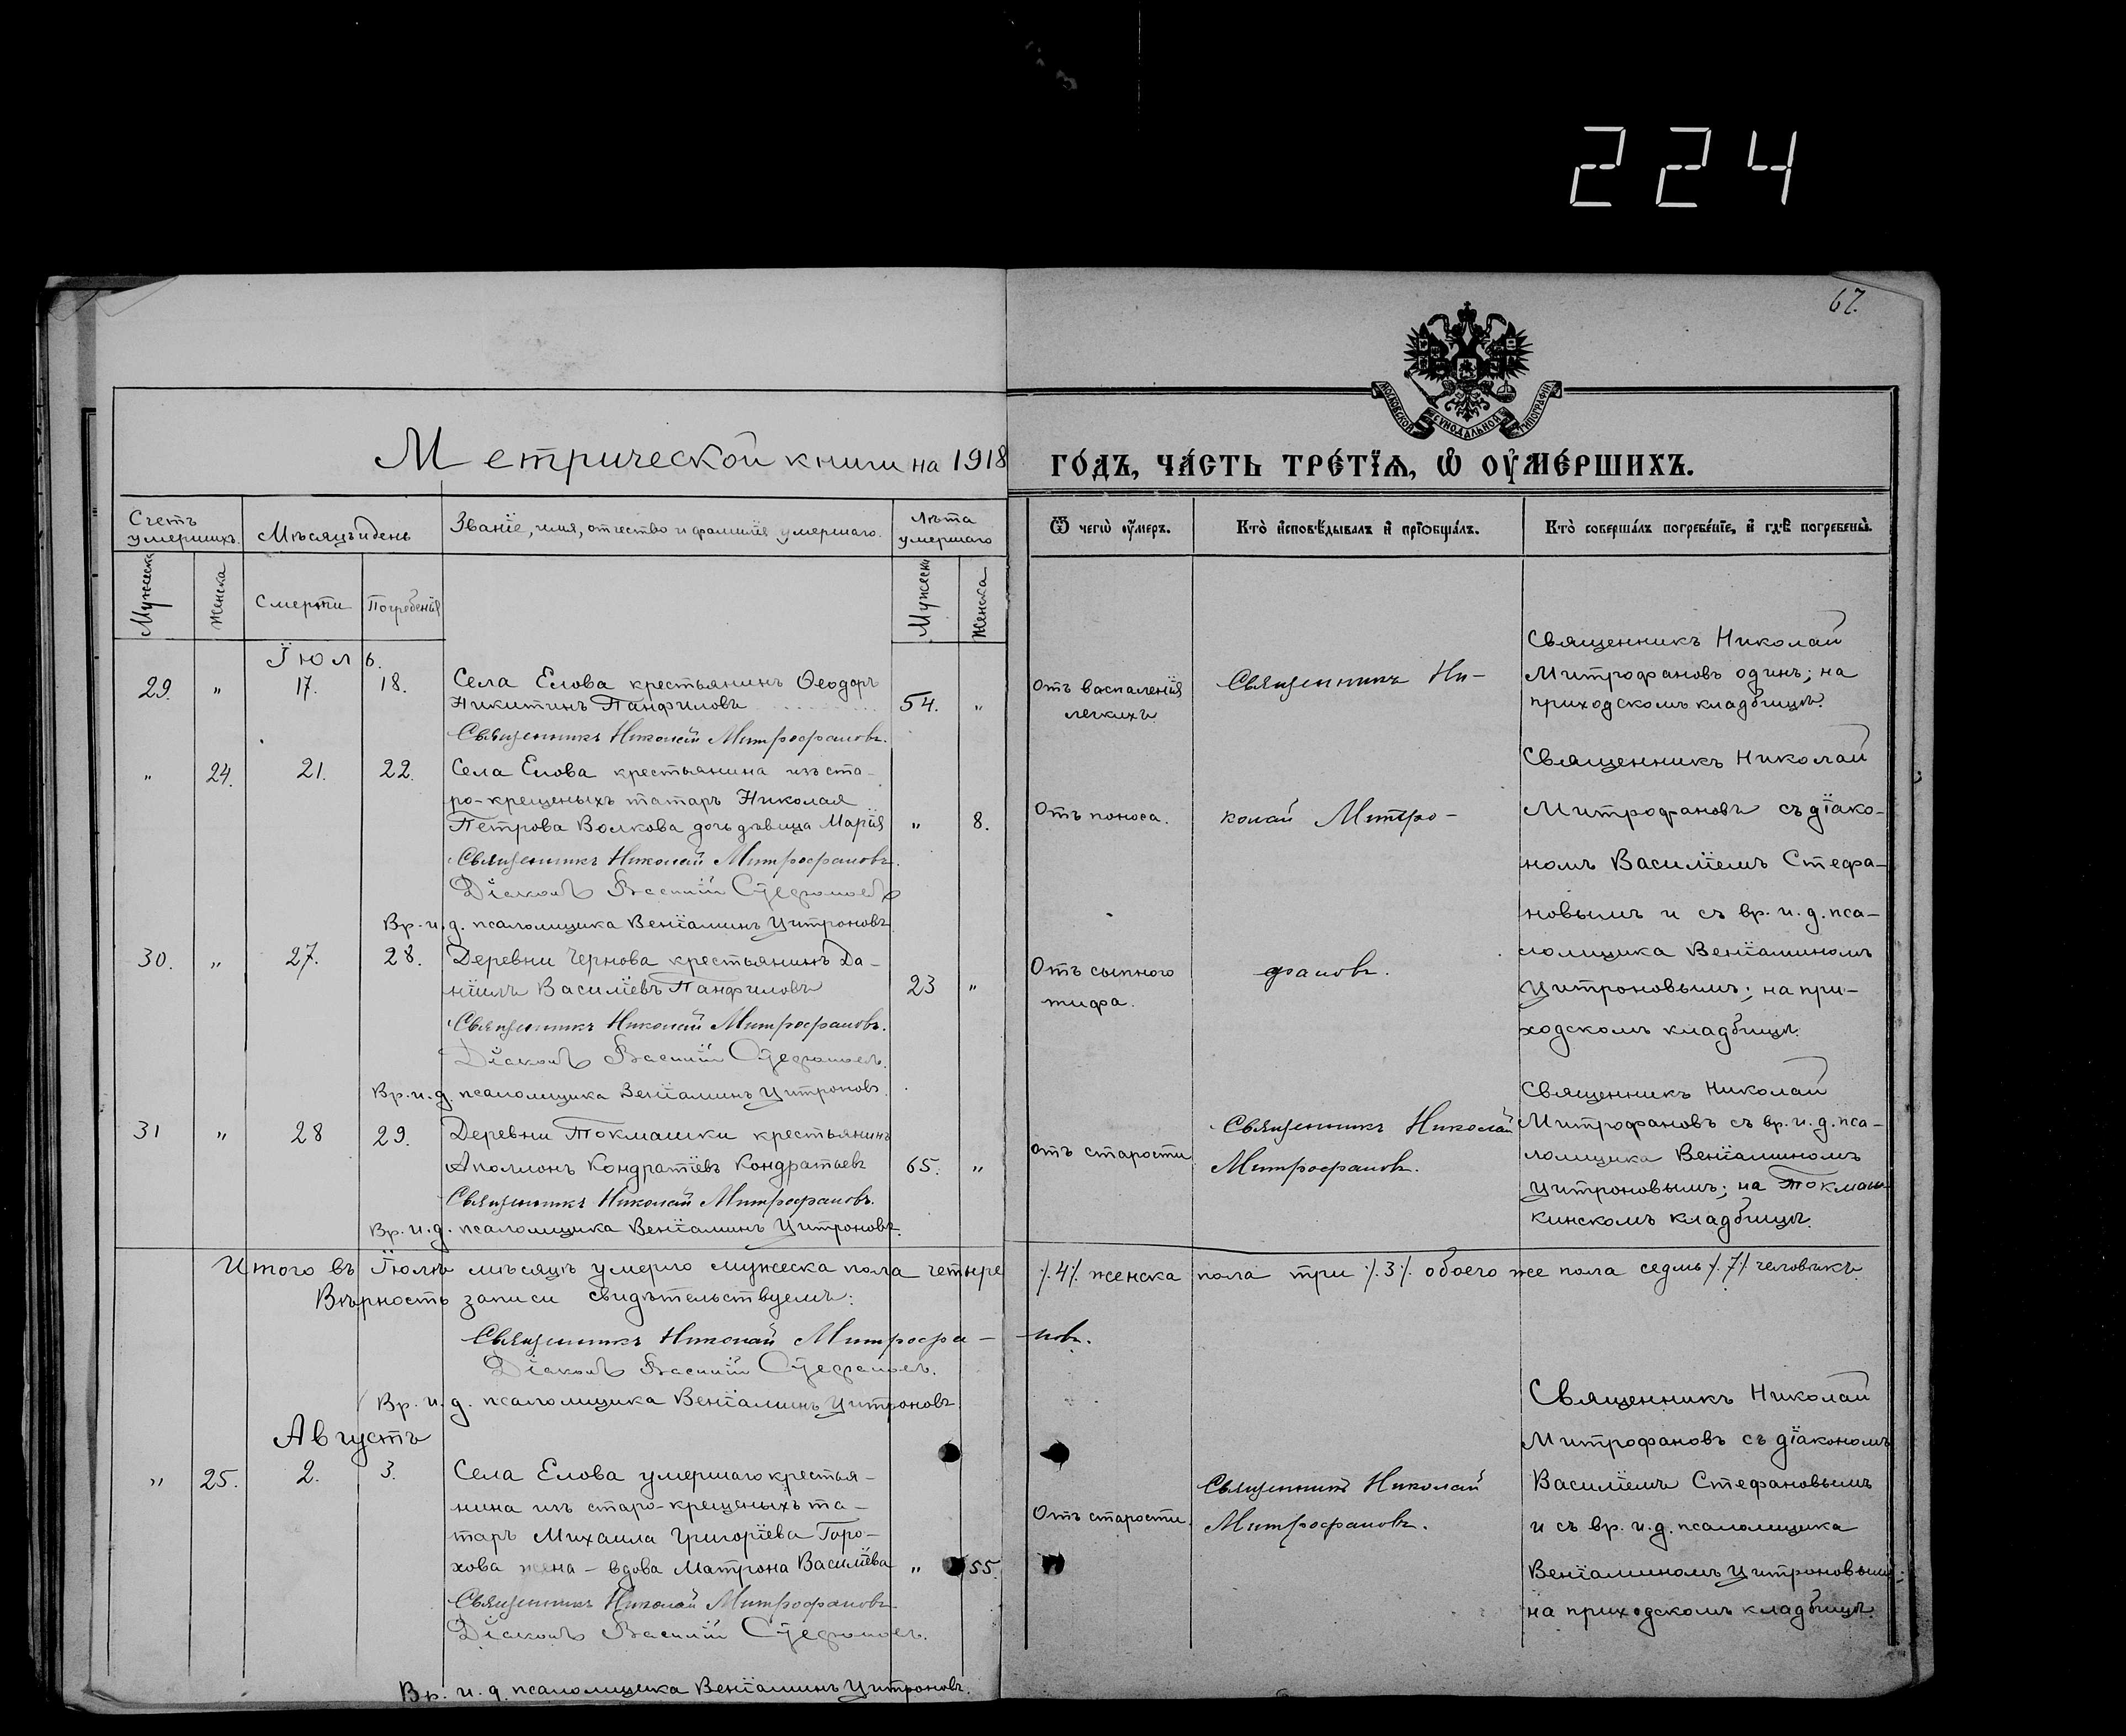 224
67.
МОСКОВСКОЙ СѴНОДАЛЬНОЙ ТИПОГРАФІИ
Метрической книги на 1918
ГО́ДЪ, ЧА́СТЬ ТРЕ́ТЇѦ, Ѡ҆ ОУ҆МЕ́РШИХЪ.
Счетъ умершихъ.
Мѣсяцъ и день
Званіе, имя, отчество и фамилія умершаго.
Лѣта умершаго
Ѿ чегѡ̀ оу҆́меръ.
Кто̀ и҆сповѣ́дывалъ и҆ прїѻбща́лъ.
Кто̀ соверша́лъ погребе́нїе, и҆ гдѣ̀ погребены̀.
Мужеска
Женска
Смерти
Погребенія
Мужеска
Женска
Іюль.
29. " 17. 18.
Села Елова крестьянинъ Ѳеодоръ
Никитинъ Панфиловъ 54. "
Священникъ Николай Митрофановъ.
Отъ васпаленія
легкихъ
Священникъ Ни-
Священникъ Николай
Митрофановъ одинъ; на
приходскомъ кладбищѣ.
" 24. 21. 22.
Села Елова крестьянина изъ ста-
ро-крещеныхъ татаръ Николая
Петрова Волкова дочь дѣвица Марія " 8.
Священникъ Николай Митрофановъ.
Діаконъ Василій Стефановъ
Вр. и. д. псаломщика Веніаминъ Цитроновъ
Отъ поноса.
колай Митро-
Священникъ Николай
Митрофановъ съ діако-
номъ Василіемъ Стефа-
новымъ и съ вр. и. д. пса-
ломщика Веніаминомъ
Цитроновымъ; на при-
ходскомъ кладбищѣ.
30. " 27. 28.
Деревни Чернова крестьянинъ Да-
ніилъ Василіевъ Панфиловъ 23 "
Священникъ Николай Митрофановъ.
Діаконъ Василій Стефановъ.
Вр. и. д. псаломщика Веніаминъ Цитроновъ.
Отъ сыпного
тифа.
фановъ.
31 " 28 29.
Деревни Токмашки крестьянинъ
Аполлонъ Кондратіевъ Кондратьевъ 65. "
Священникъ Николай Митрофановъ.
Вр. и. д. псаломщика Веніаминъ Цитроновъ.
Отъ старости
Священникъ Николай
Митрофановъ.
Священникъ Николай
Митрофановъ съ вр. и. д. пса-
ломщика Веніаминомъ
Цитроновымъ; на Токмаш-
кинскомъ кладбищѣ.
Итого въ Іюлѣ мѣсяцѣ умерло мужеска пола четыре /.4/. женска пола три /.3/. обоего же пола седмь /.7/. человѣкъ.
Вѣрность записи свидѣтельствуемъ:
Священникъ Николай Митрофа-новъ.
Діаконъ Василій Стефановъ.
Вр. и. д. псаломщика Веніаминъ Цитроновъ.
Августъ
" 25. 2. 3.
Села Елова умершаго крестья-
нина изъ старо-крещеныхъ та-
таръ Михаила Григоріева Горо-
хова жена - вдова Матрона Василіева " 55.
Священникъ Николай Митрофановъ
Діаконъ Василій Стефановъ.
Вр. и. д. псаломщика Веніаминъ Цитроновъ.
Отъ старости.
Священникъ Николай
Митрофановъ.
Священникъ Николай
Митрофановъ съ діакономъ
Василіемъ Стефановымъ
и съ вр. и. д. псаломщика
Веніаминомъ Цитроновымъ;
на приходскомъ кладбищѣ.